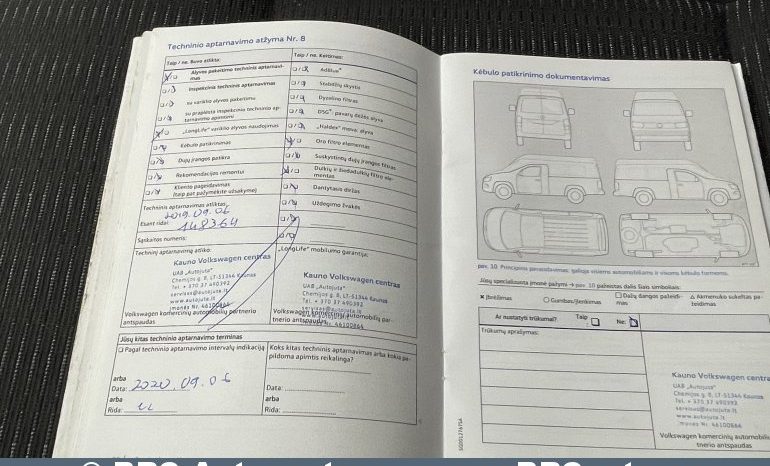 Techninio aptarnavimo atžyma Nr. 8
Taip / ne. Buvo atlikta:
Alyvos pakeitimo techninis aptarnavi-
mas
Inspekcinis techninis aptarnavimas
su variklio alyvos pakeitimu
su praplėsta inspekcinio techninio ap-
tarnavimo apimtimi
„LongLife“ variklio alyvos naudojimas
Kėbulo patikrinimas
Dujų įrangos patikra
Rekomendacijos remontui
Kliento pageidavimas
(taip pat pažymėkite užsakyme)
Techninis aptarnavimas atliktas
2019.09.06
Esant ridai: 148364
Sąskaitos numeris:
Techninį aptarnavimą atliko:
Kauno Volkswagen centras
UAB „Autojuta“
Chemijos g. 8, LT-51344 Kaunas
Tel. + 370 37 490392
servisas@autojuta.lt
www.autojuta.lt
Įmonės Nr. 46100864
Volkswagen komercinių automobilių partnerio
antspaudas
Taip / ne. Keitimas:
AdBlue®
Stabdžių skystis
Dyzelino filtras
DSG®: pavarų dėžės alyva
„Haldex“ mova: alyva
Oro filtro elementas
Suskystintų dujų įrangos filtras
Dulkių ir žiedadulkių filtro ele-
mentas
Dantytasis diržas
Uždegimo žvakės
„LongLife“ mobilumo garantija:
Kauno Volkswagen centras
UAB „Autojuta“
Chemijos g. 8, LT-51344 Kaunas
Tel. + 370 37 490392
servisas@autojuta.lt
www.autojuta.lt
Įmonės Nr. 46100864
Volkswagen komercinių automobilių par-
tnerio antspaudas
Jūsų kitas techninio aptarnavimo terminas
Pagal techninio aptarnavimo intervalų indikaciją
arba
Data: 2020.09.06
arba
Rida:
Koks kitas techninis aptarnavimas arba kokia pa-
pildoma apimtis reikalinga?
Data:
arba
Rida:
Kėbulo patikrinimo dokumentavimas
pav. 10 Principinis pavaizdavimas: galioja visiems automobiliams ir visoms kėbulo formoms.
Jūsų specializuota įmonė pažymi → pav. 10 pažeistas dalis šiais simboliais:
× Įbrėžimas
○ Gumbas/įlenkimas
□ Dažų dangos pažeidi-
mas
△ Akmenuko sukeltas pa-
žeidimas
Ar nustatyti trūkumai?
Taip
Ne:
Trūkumų aprašymas:
Kauno Volkswagen centras
UAB „Autojuta“
Chemijos g. 8, LT-51344 Kaunas
Tel. + 370 37 490392
servisas@autojuta.lt
www.autojuta.lt
Įmonės Nr. 46100864
Volkswagen komercinių automobilių
tnerio antspaudas